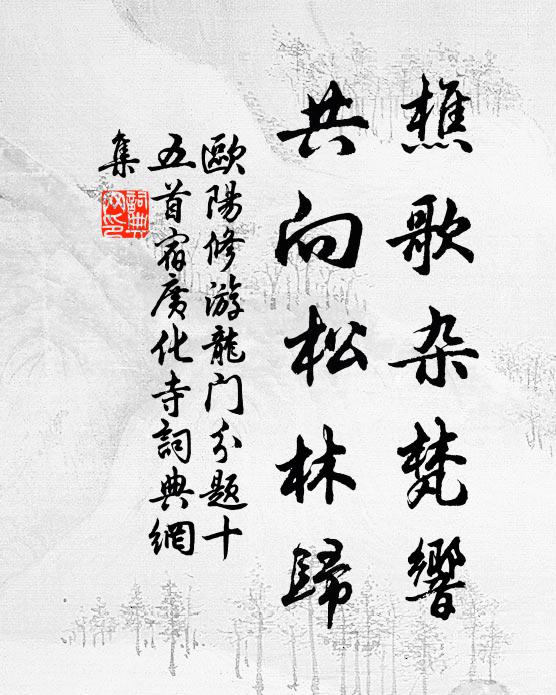 樵歌杂梵響
共向松林歸
歐陽修游龍门分题十
五首宿廣化寺詞典網
集
詞典
网印